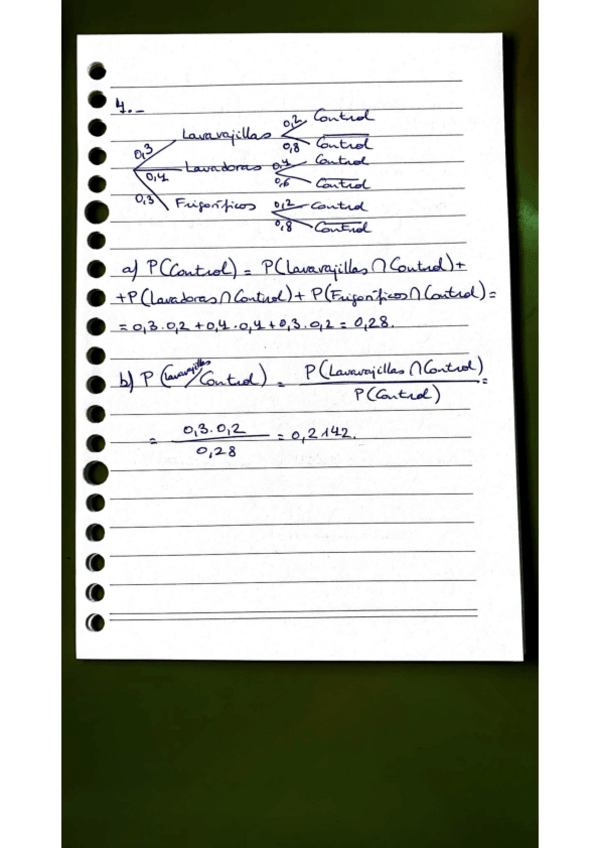 4.-
0,2 Control
0,3 Lavavajillas
0,8 C̅o̅n̅t̅r̅o̅l̅
0,4 Lavadoras 0,4 Control
0,6 C̅o̅n̅t̅r̅o̅l̅
0,3 Frigoríficos 0,2 Control
0,8 C̅o̅n̅t̅r̅o̅l̅
a) P(Control) = P(Lavavajillas ∩ Control) +
+ P(Lavadoras ∩ Control) + P(Frigoríficos ∩ Control) =
= 0,3 · 0,2 + 0,4 · 0,4 + 0,3 · 0,2 = 0,28.
b) P(Lavavajillas/Control) = P(Lavavajillas ∩ Control) =
P(Control)
= 0,3 · 0,2 = 0,2142.
0,28